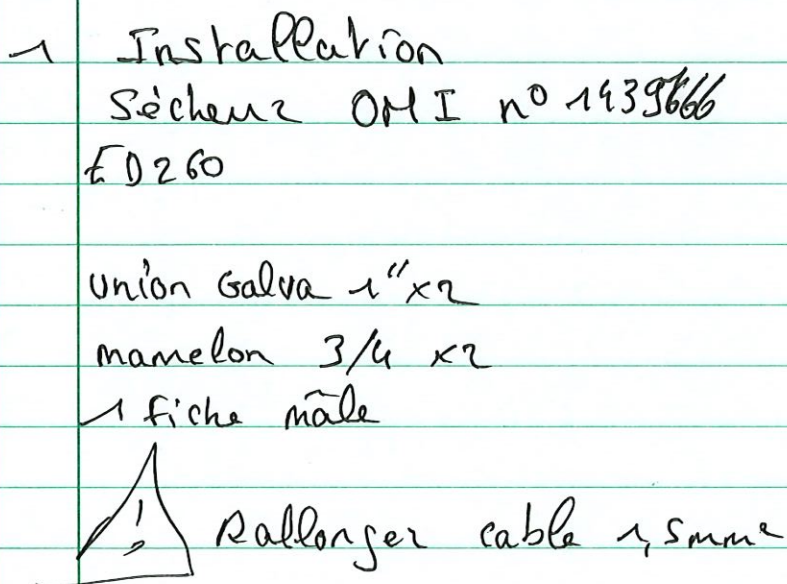 1 Installation
Sécheur OMI n° 1439666
ED260
union Galva 1" x2
mamelon 3/4 x2
1 fiche mâle
! Rallonger cable 1,5mm²